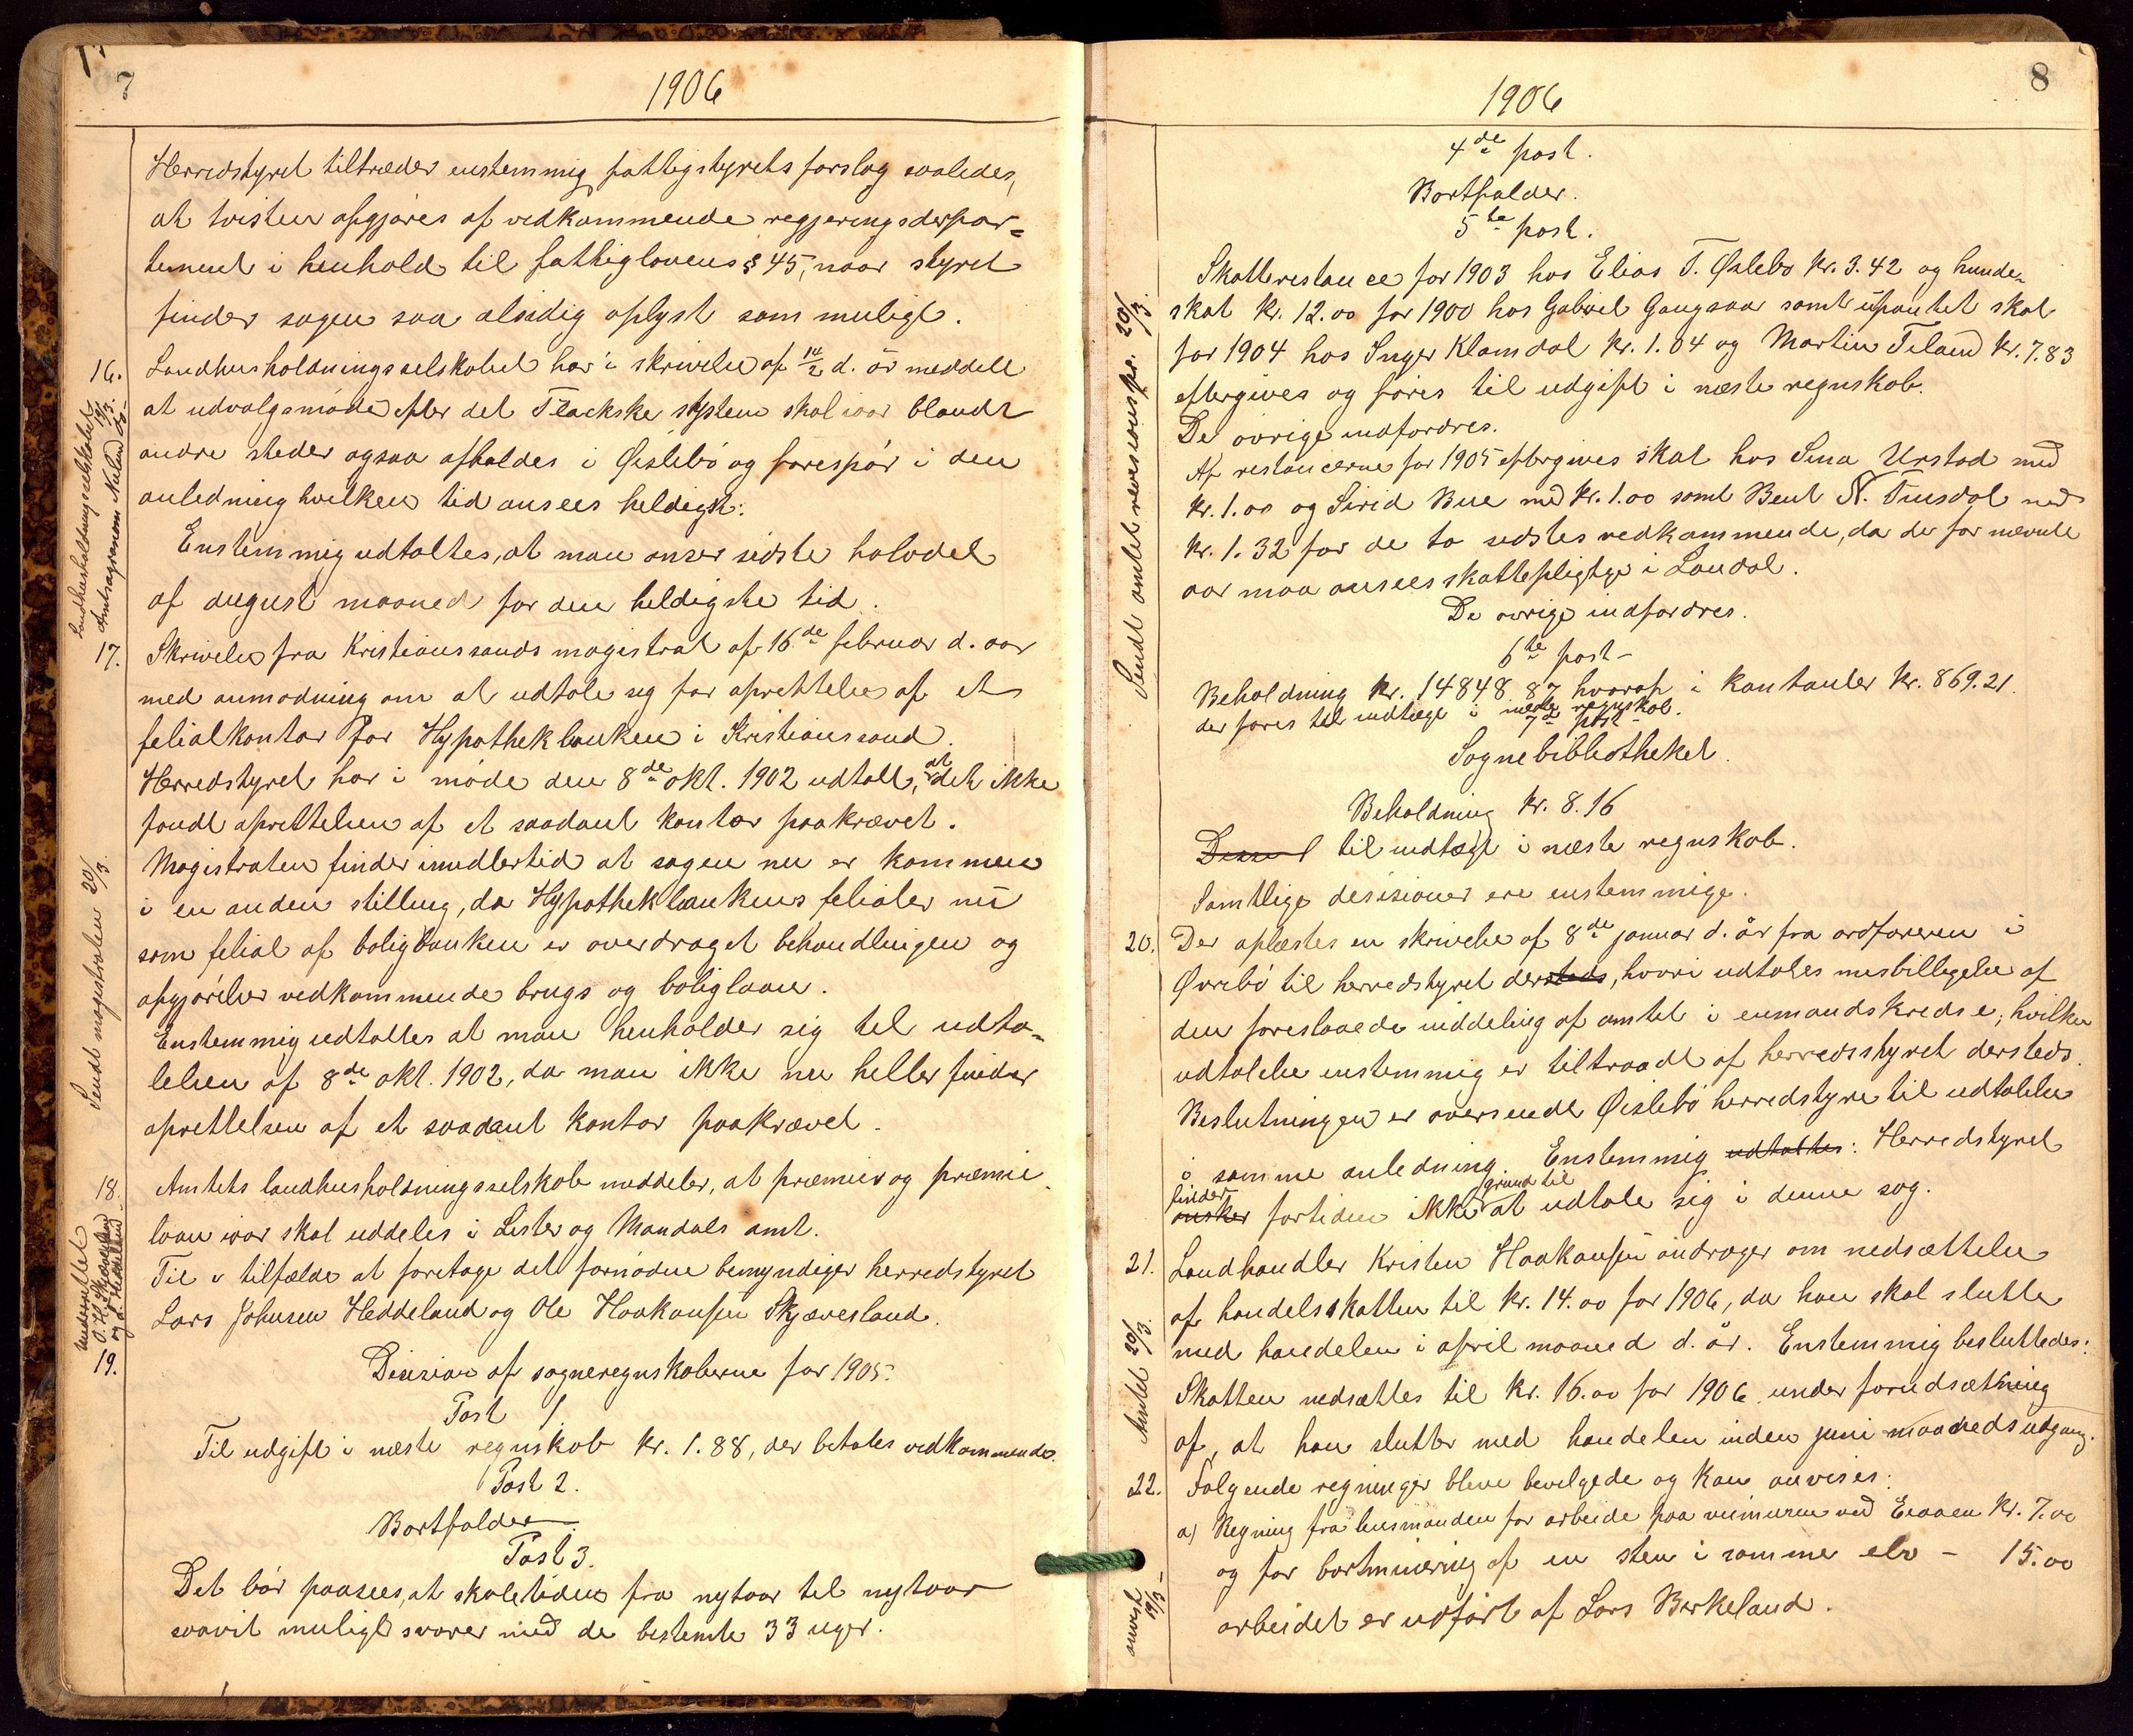 7
1906
Herredstyret tiltræder enstemmig fattigstyrets forslag saaledes,
at tvisten afgjøres af vedkommende regjeringsdepar=
tement i henhold til fattiglovens § 45, naar styret
finder sagen saa alsidig oplyst som muligt.
16. Landhusholdningsselskabet har i skrivelse af 14/2 d. år meddelt
at udvalgsmøde efter det Flackske system skal iaar blandt
andre steder ogsaa afholdes i Øislebø og forespør i den
anledning hvilken tid ansees heldigst.
Enstemmig udtaltes, at man anser sidste halvdel
af august maaned for den heldigste tid.
17. Skrivelse fra Kristianssands magistrat af 16de februar d. aar
med anmodning om at udtale sig for oprettelse af et
filialkontor for Hypothekbanken i Kristianssand.
Herredstyret har i møde den 8de okt. 1902 udtalt, at det ikke
fandt oprettelsen af et saadant kontor paakrævet.
Magistraten finder imidlertid at sagen nu er kommen
i en anden stilling, da Hypothekbankens filialer nu
som filial af boligbanken er overdraget behandlingen og
afgjørelse vedkommende brugs og boliglaan.
Enstemmig udtaltes at man henholder sig til udta=
lelsen af 8de okt. 1902, da man ikke nu heller finder
oprettelsen af et saadant kontor paakrævet.
18. Amtets landhusholdningsselskab meddeler, at præmier og præmie
laan iaar skal uddeles i Lister og Mandals amt.
Til i tilfælde at foretage det fornødne bemyndiger herredstyret
Lars Johnsen Heddeland og Ole Haakonsen Skjævesland.
19. Decision af sogneregnskaberne for 1905.
Post 1
Til udgift i næste regnskab kr. 1.88, der betales vedkommende.
Post 2.
Bortfalder.
Post 3.
Det bør paasees, at skoletiden fra nytaar til nytaar
saavit muligt svarer med de bestemte 33 uger.
Landhusholdningsselskabet
Amtsagronom
Sendt magistraten 20/3.
Underrettet
O. H. Skjævesland
og L. Heddeland
8
1906
4de post.
Bortfalder.
5te post.
Skatterestance for 1903 hos Elias T. Øslebø kr. 3.42 og hunde=
skat kr. 12.00 for 1900 hos Gabriel Gangsaa samt upantet skat
for 1904 hos Inger Klamdal kr. 1.04 og Martin Feland kr. 7.83
eftergives og føres til udgift i næste regnskab.
De øvrige indfordres.
Af restancerne for 1905 eftergives skat hos Sina Urstad med
kr. 1.00 og Sirid Bue med kr. 1.00 samt Bent N. med
kr. 1.32 for de to sidstes vedkommende, da de for nævnte
aar maa ansees skattepligtige i Laudal.
De øvrige indfordres.
6te post-
Beholdning kr. 14848.87 hvoraf i kontanter kr. 869.21.
der føres til indtægt i næste regnskab.
7de post-
Sognebibliotheket.
Beholdning kr. 8.16
til indtægt i næste regnskab.
Samtlige desisioner ere enstemmige.
20. Der oplæstes en skrivelse af 8de januar d. år fra ordføreren i
Øvrebø til herredstyret dersteds, hvori udtales misbilligelse af
den foreslaaede inddeling af amtet i enmandskredse, hvilken
udtalelse enstemmig er tiltraadt af herredsstyret dersteds.
Beslutningen er oversendt Øislebø herredstyre til udtalelse
i samme anledning. Enstemmig udtaltes: Herredstyret
finder
ønsker fortiden ikke grund til at udtale sig i denne sag.
21. Landhandler Kristen Haakonsen andrager om nedsættelse
af handelsskatten til kr. 14.00 for 1906, da han skal slutte
med handelen i april maaned d. år. Enstemmig besluttedes:
Skatten nedsættes til kr. 16.00 for 1906 under forudsætning
af, at han slutter med handelen inden juni maaneds udgang.
22. Følgende regninger bleve bevilgede og kan anvises:
a) Regning fra lensmanden for arbeide paa veimuren ved Eraaen kr. 7.00
og for bortminering af en sten i samme elv - 15.00
arbeidet er udført af Lars Birkeland.
Sendt amtet revisionspr. 20/3.
Amtet 20/3.
anvist
19/3-